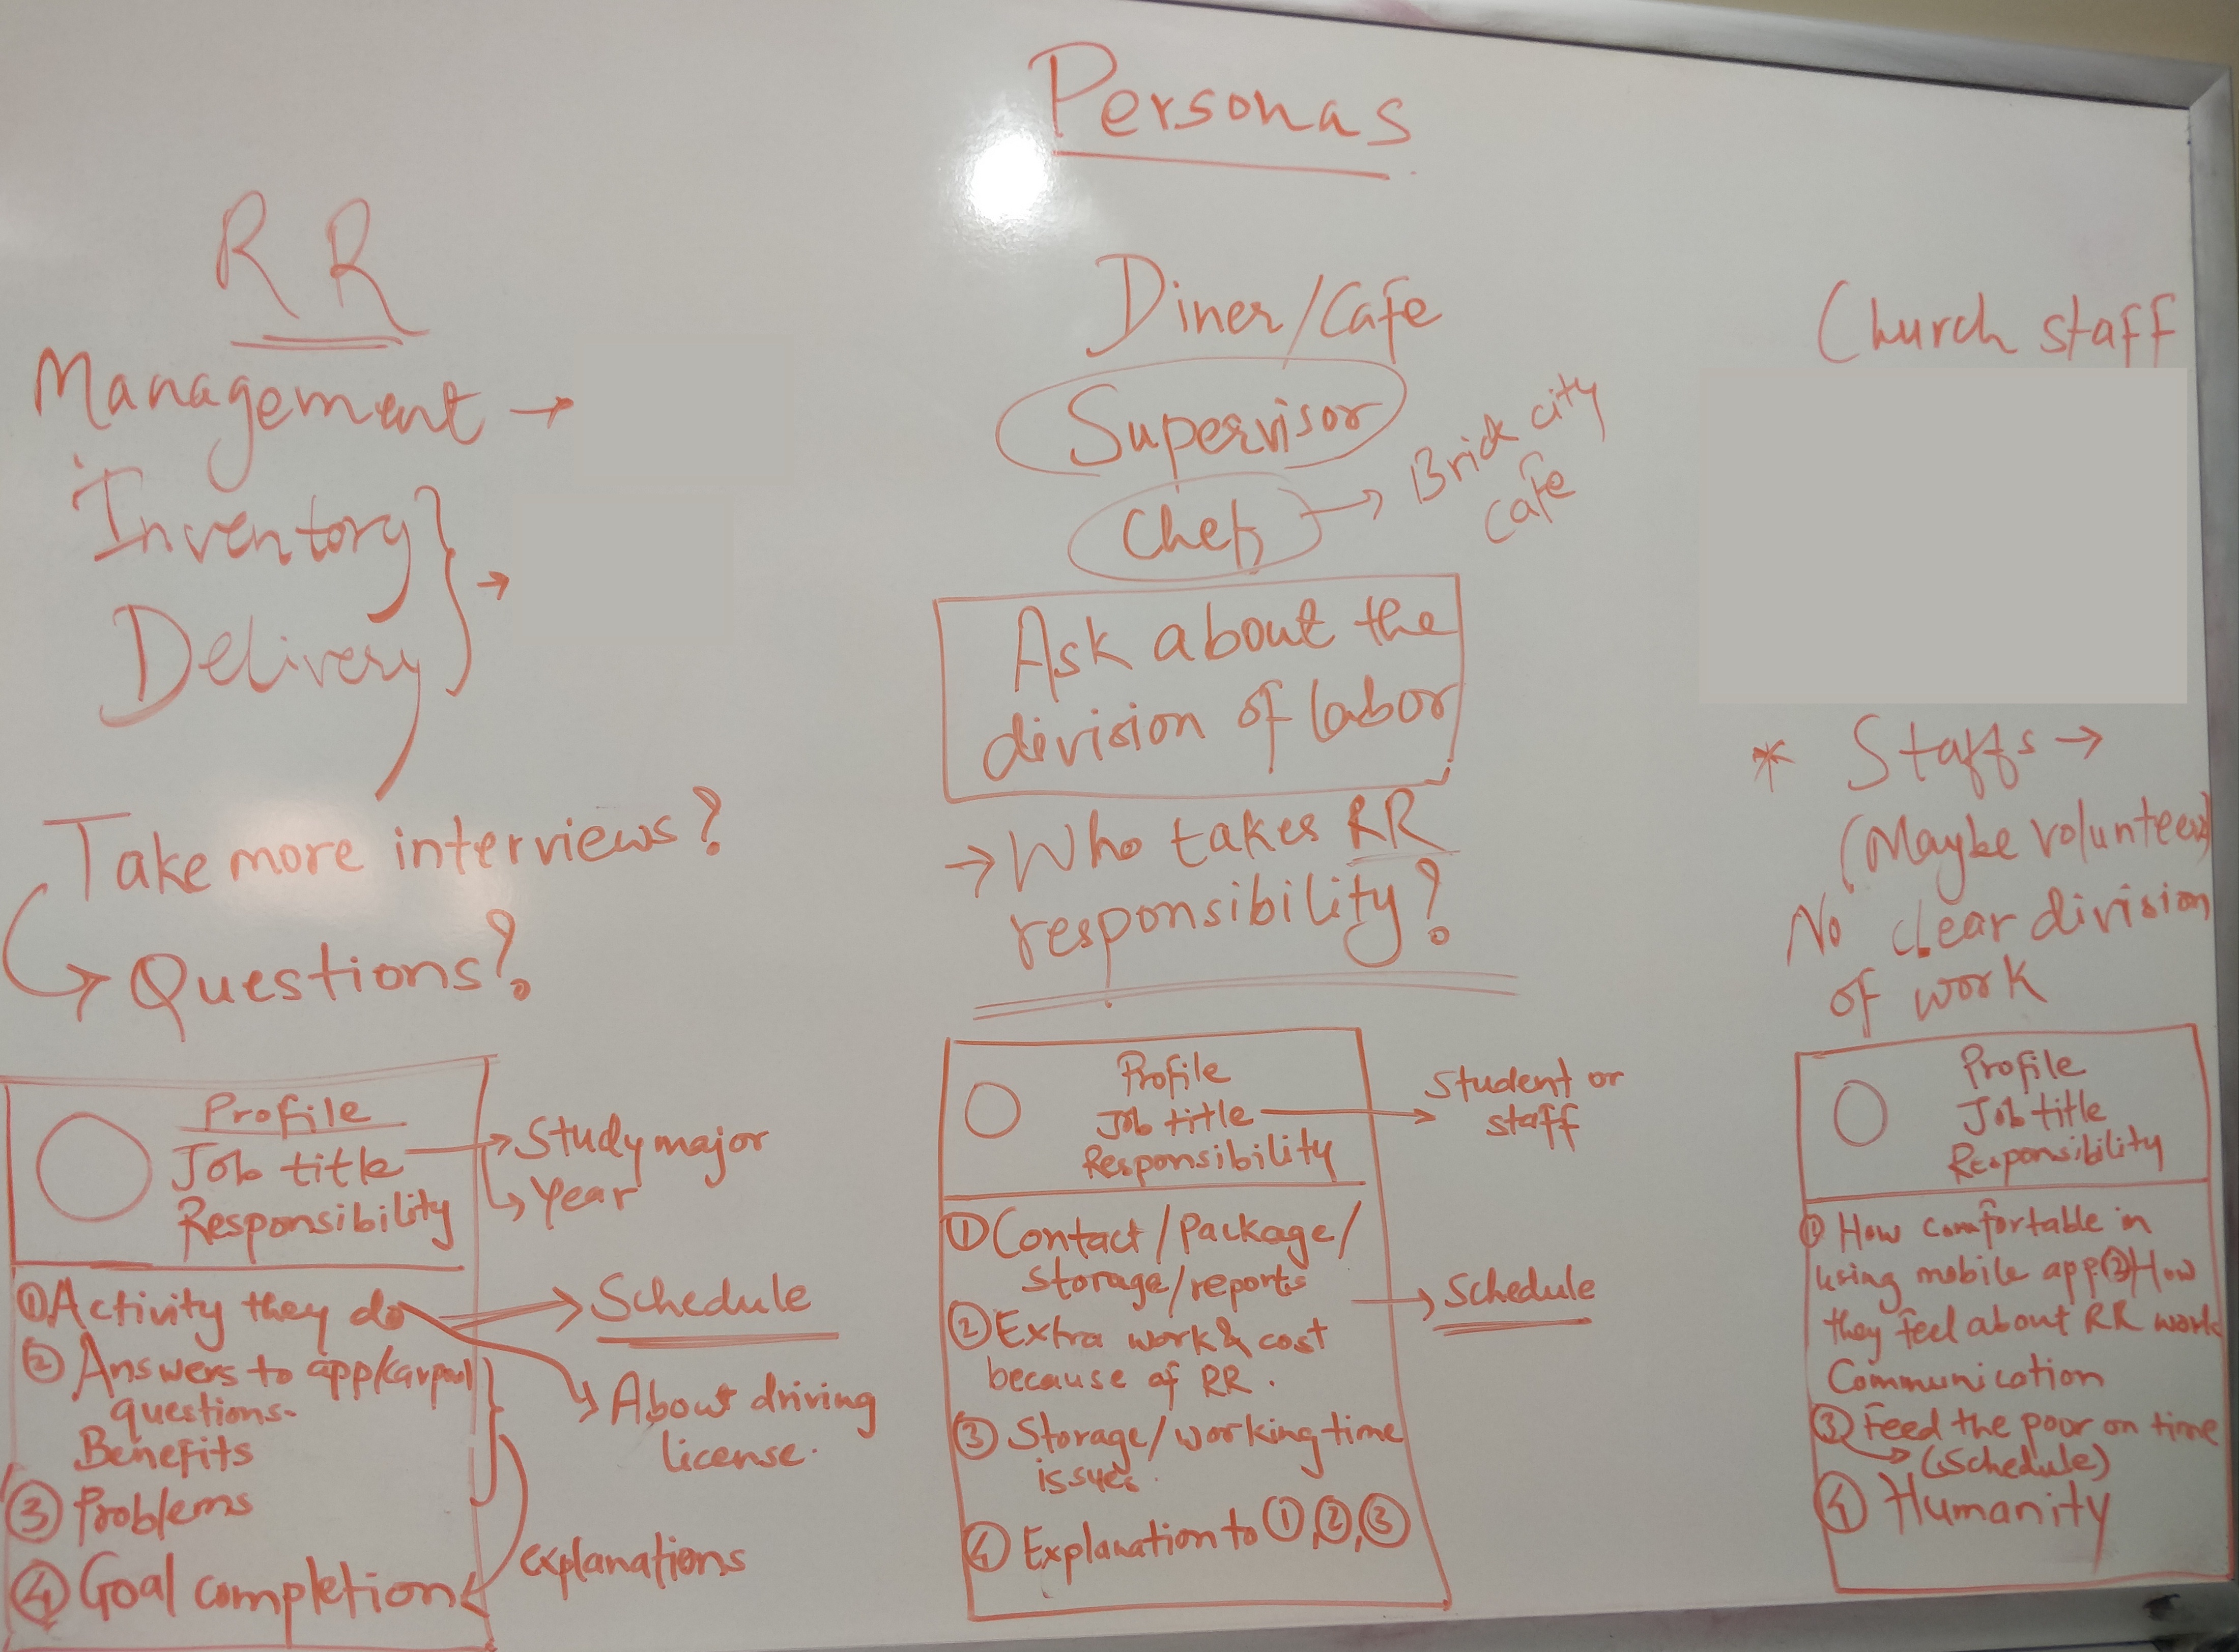 Personas
RR
Management →
Inventory
Delivery
→
Take more interviews?
→ Questions?
Profile
Job title
Responsibility
→ Study major
→ Year
① Activity they do
→ Schedule
→ About driving
license.
② Answers to app/carpool
questions.
Benefits
③ Problems
④ Goal completion
explanations
Diner/Cafe
Supervisor
Chef
→ Brick city
Cafe
Ask about the
division of labor
→ Who takes RR
responsibility?
Profile
Job title
Responsibility
→ Student or
staff
① Contact/Package/
Storage/reports
② Extra work & cost
because of RR.
→ Schedule
③ Storage/working time
issues.
④ Explanation to ①,②,③
Church staff
* Staffs →
(Maybe volunteers)
No clear division
of work
Profile
Job title
Responsibility
① How comfortable in
using mobile app. ② How
they feel about RR work
Communication
③ Feed the poor on time
→ (Schedule)
④ Humanity